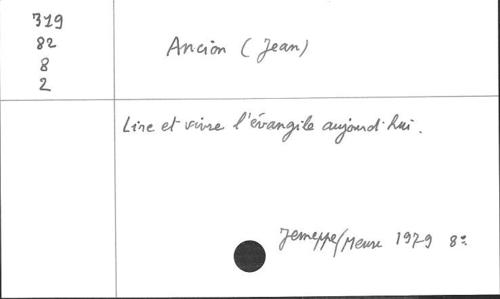 319
82
8
2
Ancion (Jean)
Lire et vivre l'évangile aujourd'hui.
Jemeppe/Meuse 1979 8°